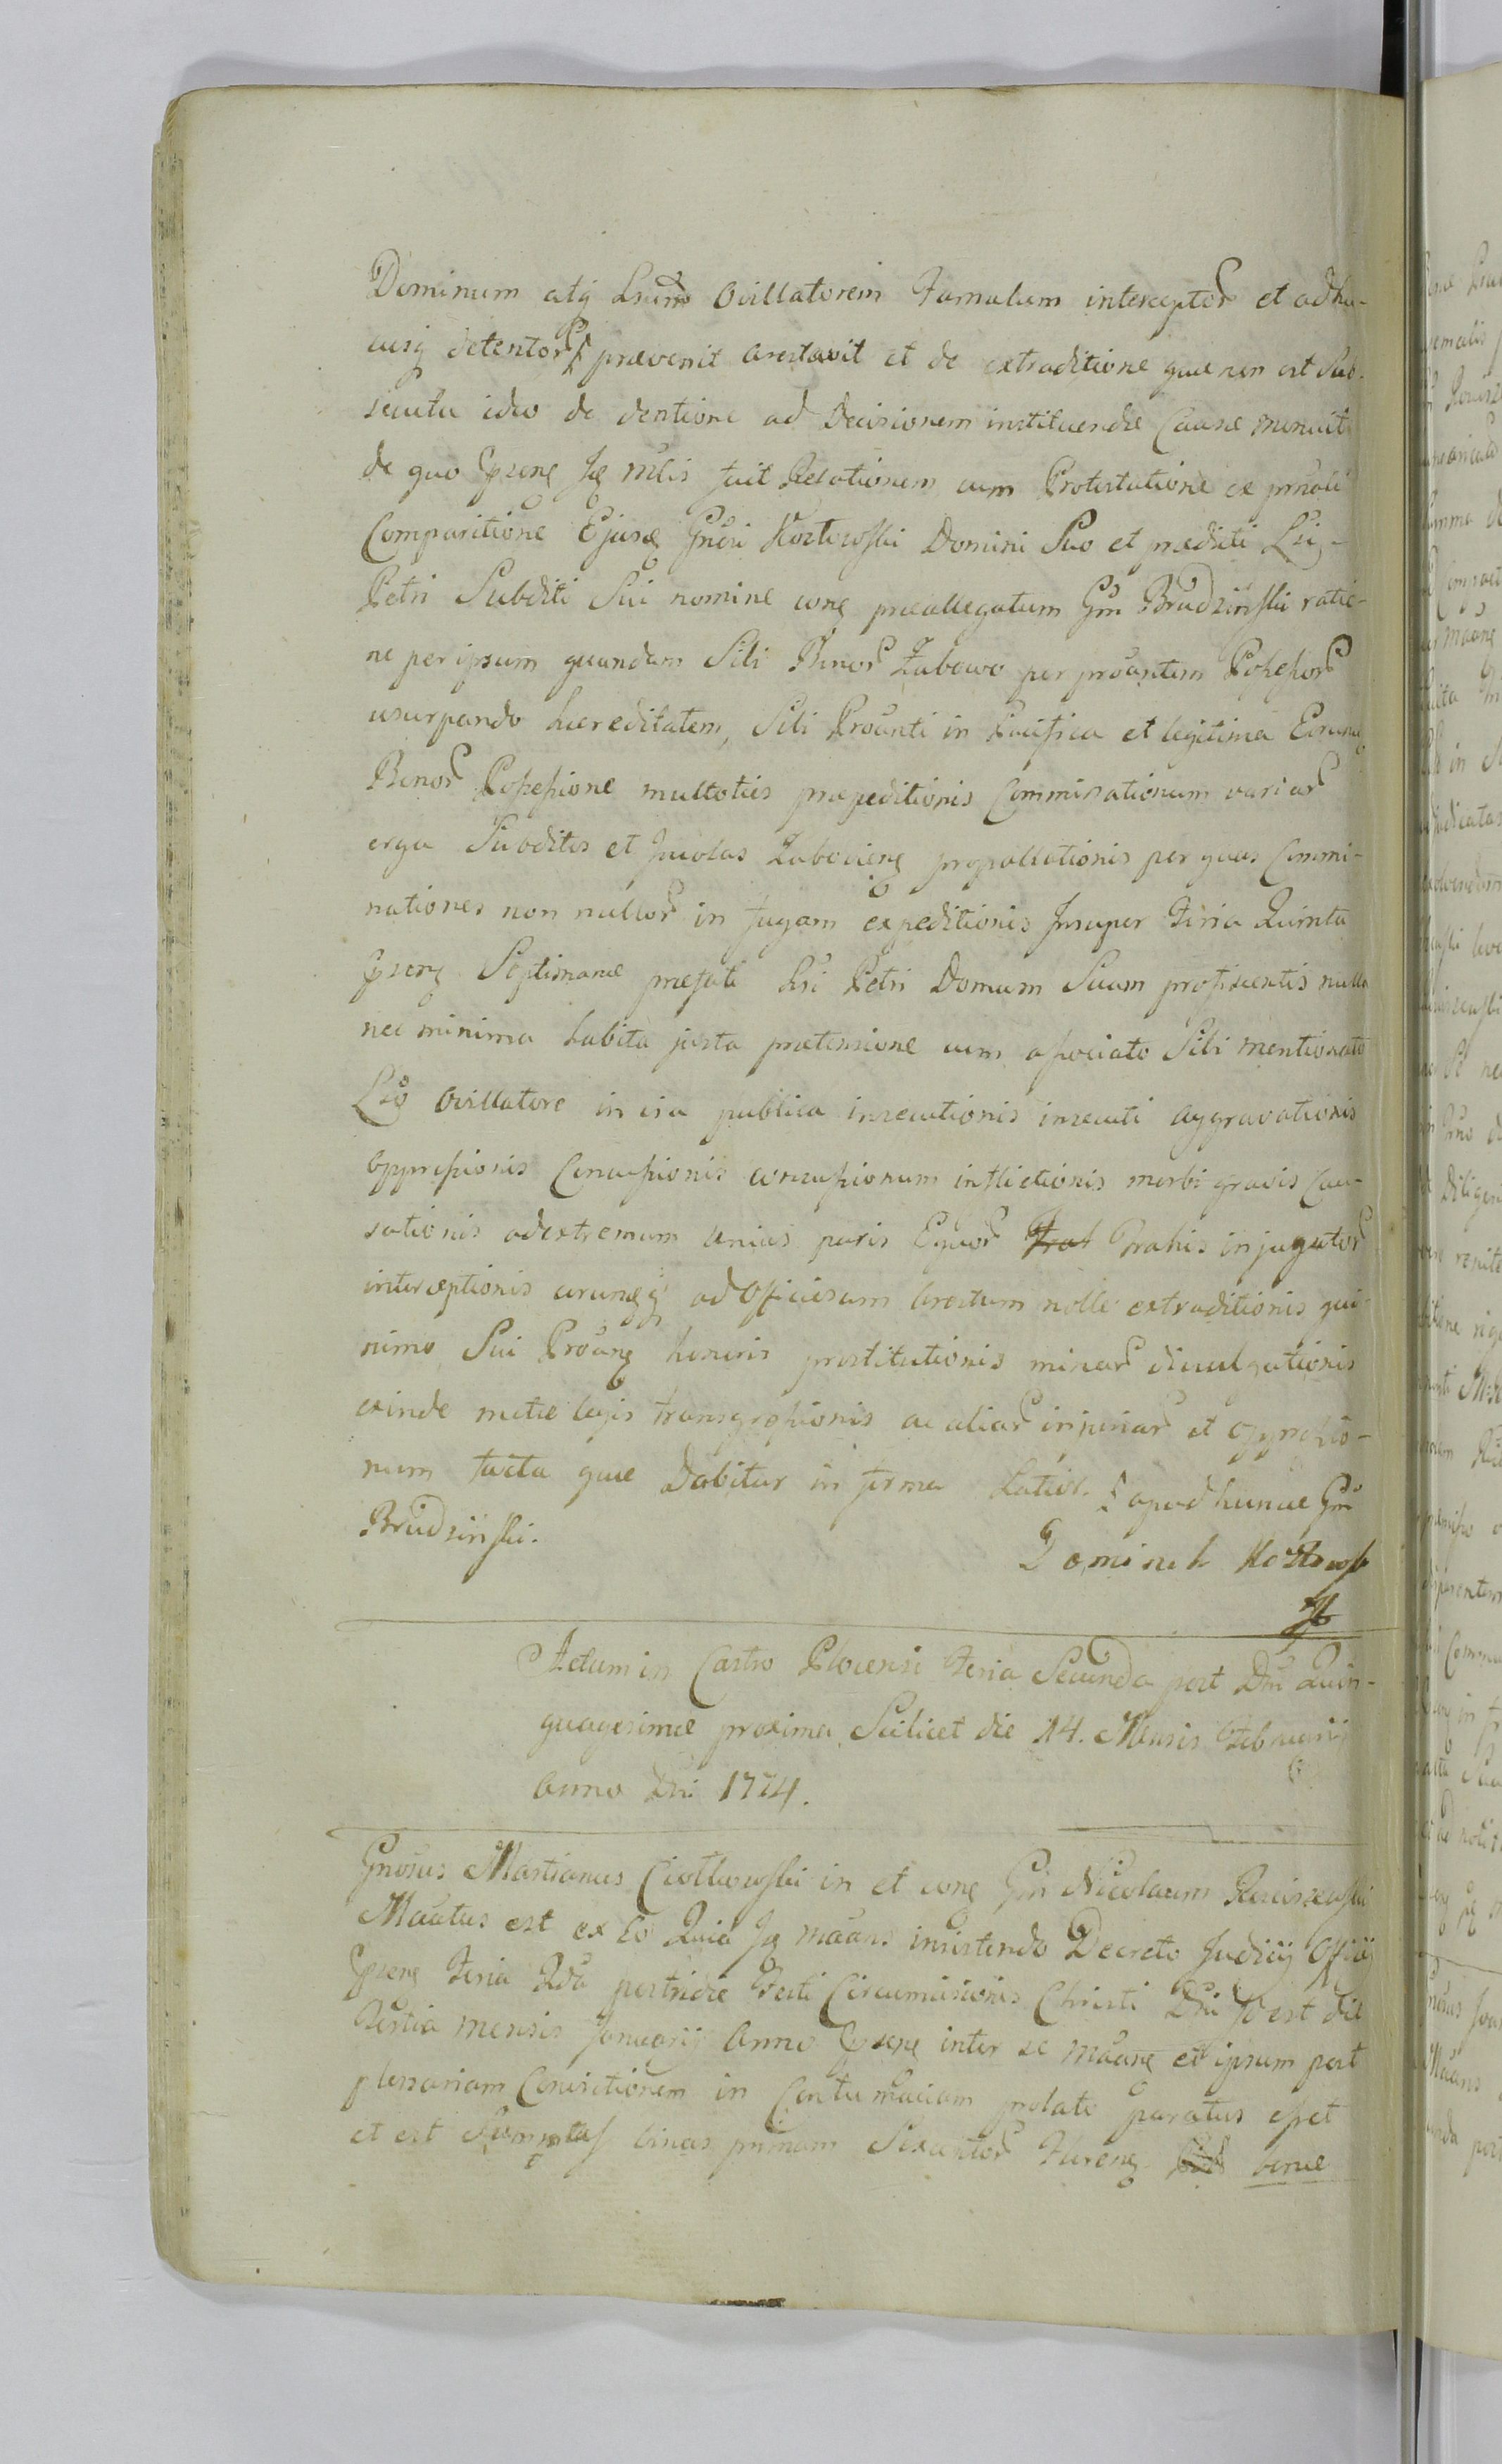 Dominum atq Lsum Ovillatorem Famulum interceptor et adhu-
cusq detentor prævenit arestavit et de extraditione quæ non est Sub-
secuta ideo de dentione ad Decisionem instituendæ Causæ monuit
de quo Jpseng Jg mlis fuit Relationem cum Protestatione ex prnali
Comparitione Ejusg Gnosi Kozłowski Domini Suo et prædicti Lsi
Petri Subditi Sui nomine cong præallegatum Gm Brudzinski ratio-
ne per ipsum quandam Sibi Bonor Zabowo per proantem Possessor
usurpando hæreditatem, Sibi Proanti in Pacifica et legitima Eorund
Bonor Possessione multoties præpeditionis Comminationum variar
erga Subditos et Jncolas Zaboviens propallationis per quas Commi-
nationes non nullor in fugam expeditionis Jnsuper Feria Quinta
Jpseng Septimanæ præfati Lsi Petri Domum Suam proficientis nulla
nec minima habita justa prætensione cum associato Sibi mentionato
Lso Ovillatore in via publica insecutionis insecuti aggravationis
Oppressionis Concussionis concussionum inflictionis morbi gravis Cau-
sationis ad extremum unius paris Equor Trah Trahis injugator
interceptionis eorundq ad Officiosum Arestum nolle extraditionis qui-
nimo Sui Proang honoris prostitutionis minar divulgationis
exinde metæ legis transgressionis ac aliar injuriar et oppressio-
num facta quæ Dabitur in forma Latior. apud hunc Gm
Brudzinski.
Dominik Kozłowsk
Actum in Castro Plocensi Feria Secunda post Dni Quin-
quagesimæ proxima Scilicet die 14. Mensis Februarii
Anno Dni 1774.
Gnosus Martianus Ciołkowski in et cong Gm Nicolaum Rosciszewski
Maatus est ex Eo Quia Jg maans insistendo Decreto Judicij Officij
Jpseng Feria 2da postridie Festi Circumcisionis Christi Dni Id est die
Tertia mensis Januarij Anno Jpseng inter se maang et ipsum post
plenariam Convictionem in Contumaciam prolato paratus esset
et est Summas binas primam Sexcentor Floreng bonæ